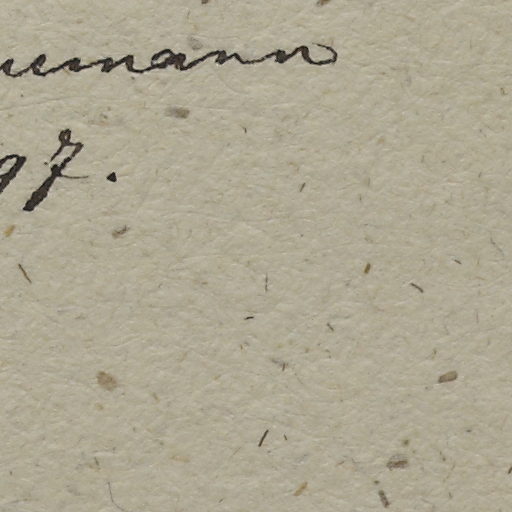 uemann
97.